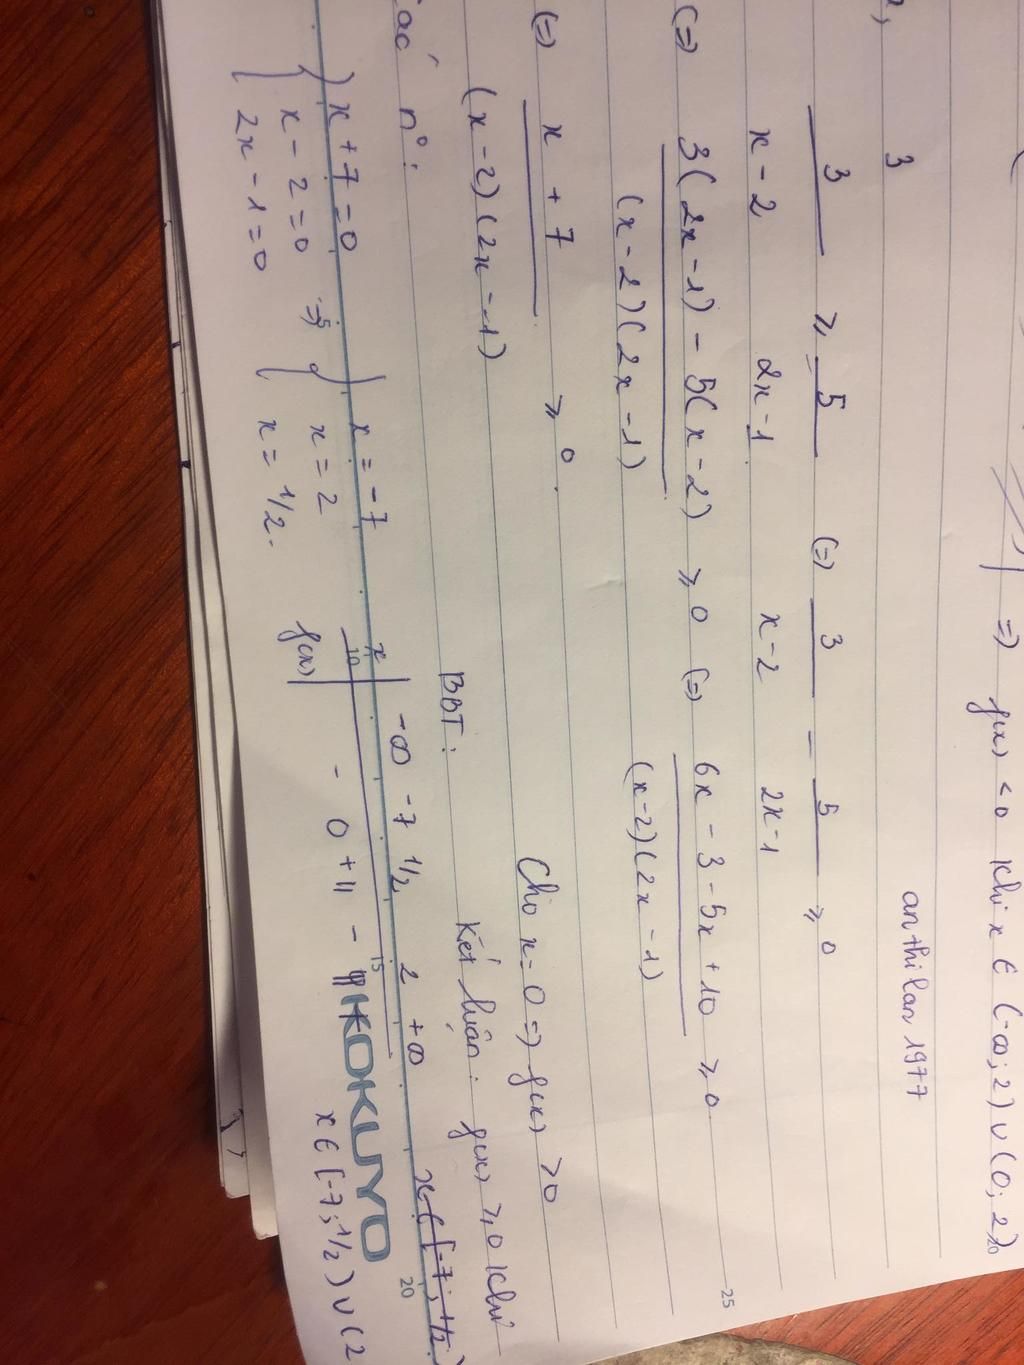 =) f(x) < 0 khi x ∈ (-∞; 2) ∪ (0; 2)
3
anthilan1977
3/(x-2) ≥ 5/(2x-1) (=) 3/(x-2) - 5/(2x-1) ≥ 0
(=) (3(2x-1) - 5(x-2))/((x-2)(2x-1)) ≥ 0 (=) (6x - 3 - 5x + 10)/((x-2)(2x-1)) ≥ 0
(=) (x + 7)/((x-2)(2x-1)) ≥ 0.
Cho x = 0 => f(x) > 0
các n°:
x + 7 = 0
x - 2 = 0
2x - 1 = 0
=>
x = -7
x = 2
x = 1/2.
BBT:
x -∞ -7 1/2 2 +∞
f(x) - 0 + || - || +
Kết luận: f(x) ≥ 0 khi
x ∈ [-7; 1/2)
x ∈ [-7; 1/2) ∪ (2
KOKUYO
10 15 20
25
20